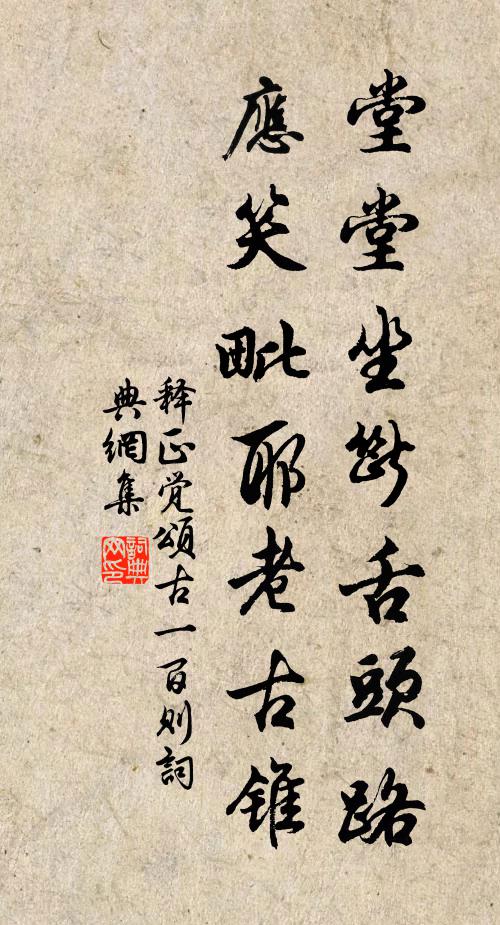 堂堂坐斷舌頭路
應笑毗耶老古錐
释正觉頌古一百则詞
典網集
詞典
网印